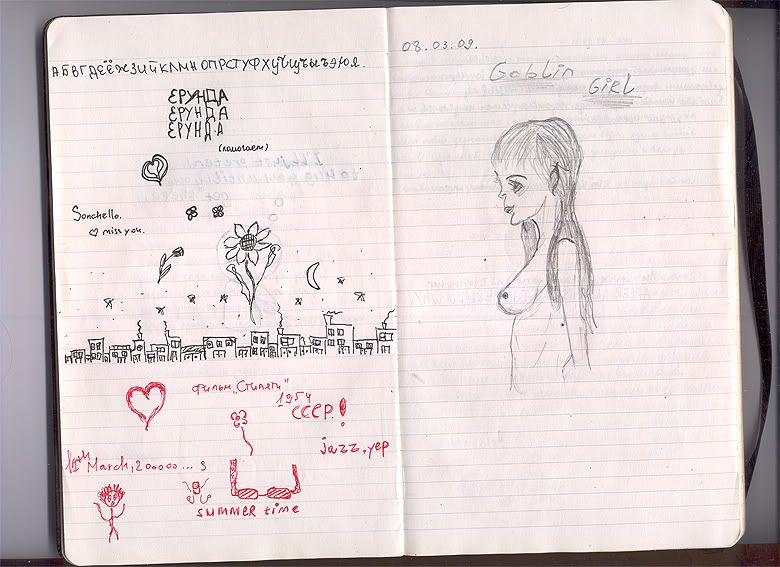 АБВГДЕЁЖЗИЙКЛМНОПРСТУФХЦЧШЩЪЫЬЭЮЯ.
ЕРУНДА
ЕРУНДА
ЕРУНДА
Sonchello.
miss you.
фильм „Стиляги"
1954
СССР!
jazz, yep
11th March, 200000...9
summer time
08.03.09.
Goblin
GiRL